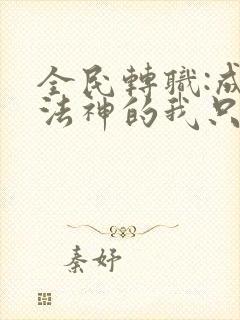 全民轉職:成
法神的我只
秦妤